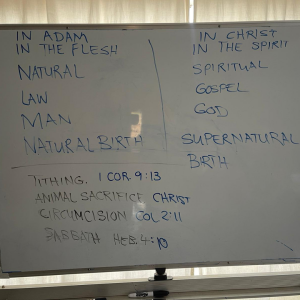 IN ADAM
IN THE FLESH
NATURAL
LAW
MAN
NATURAL BIRTH
IN CHRIST
IN THE SPIRIT
SPIRITUAL
GOSPEL
GOD
SUPERNATURAL
BIRTH
TITHING. 1 COR. 9:13
ANIMAL SACRIFICE CHRIST
CIRCUMCISION COL 2:11
SABBATH HEB. 4:10